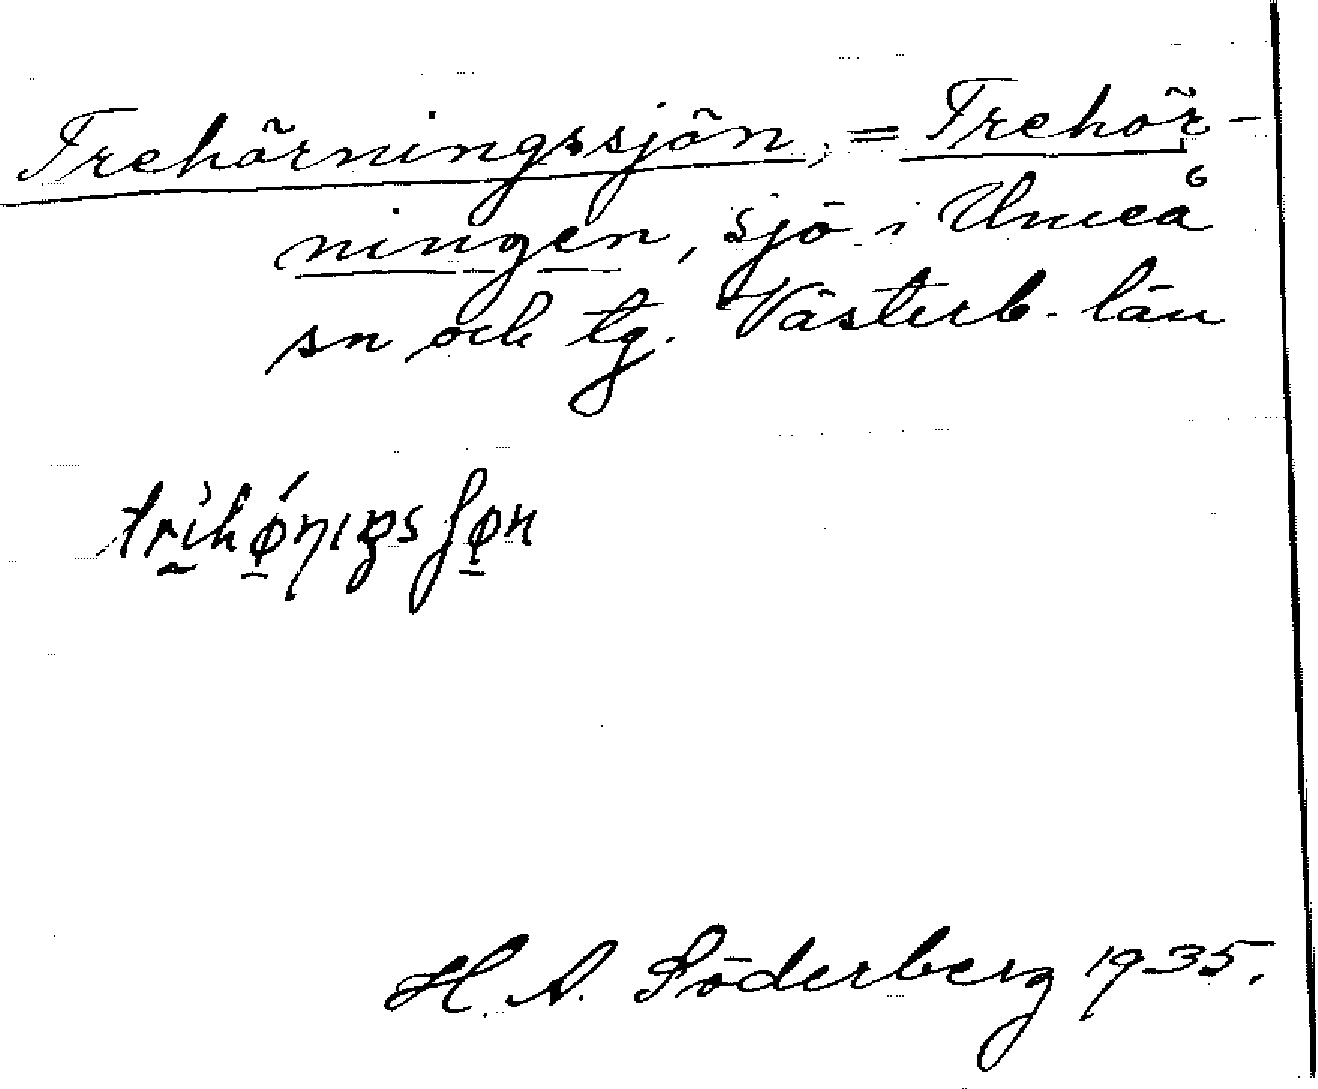 Trehörningssjön, = Trehör-
ningen, sjö i Umeå
sn och tg. Västerb. län
trihǿṇıŋsʃøn
H. A. Söderberg 1935.